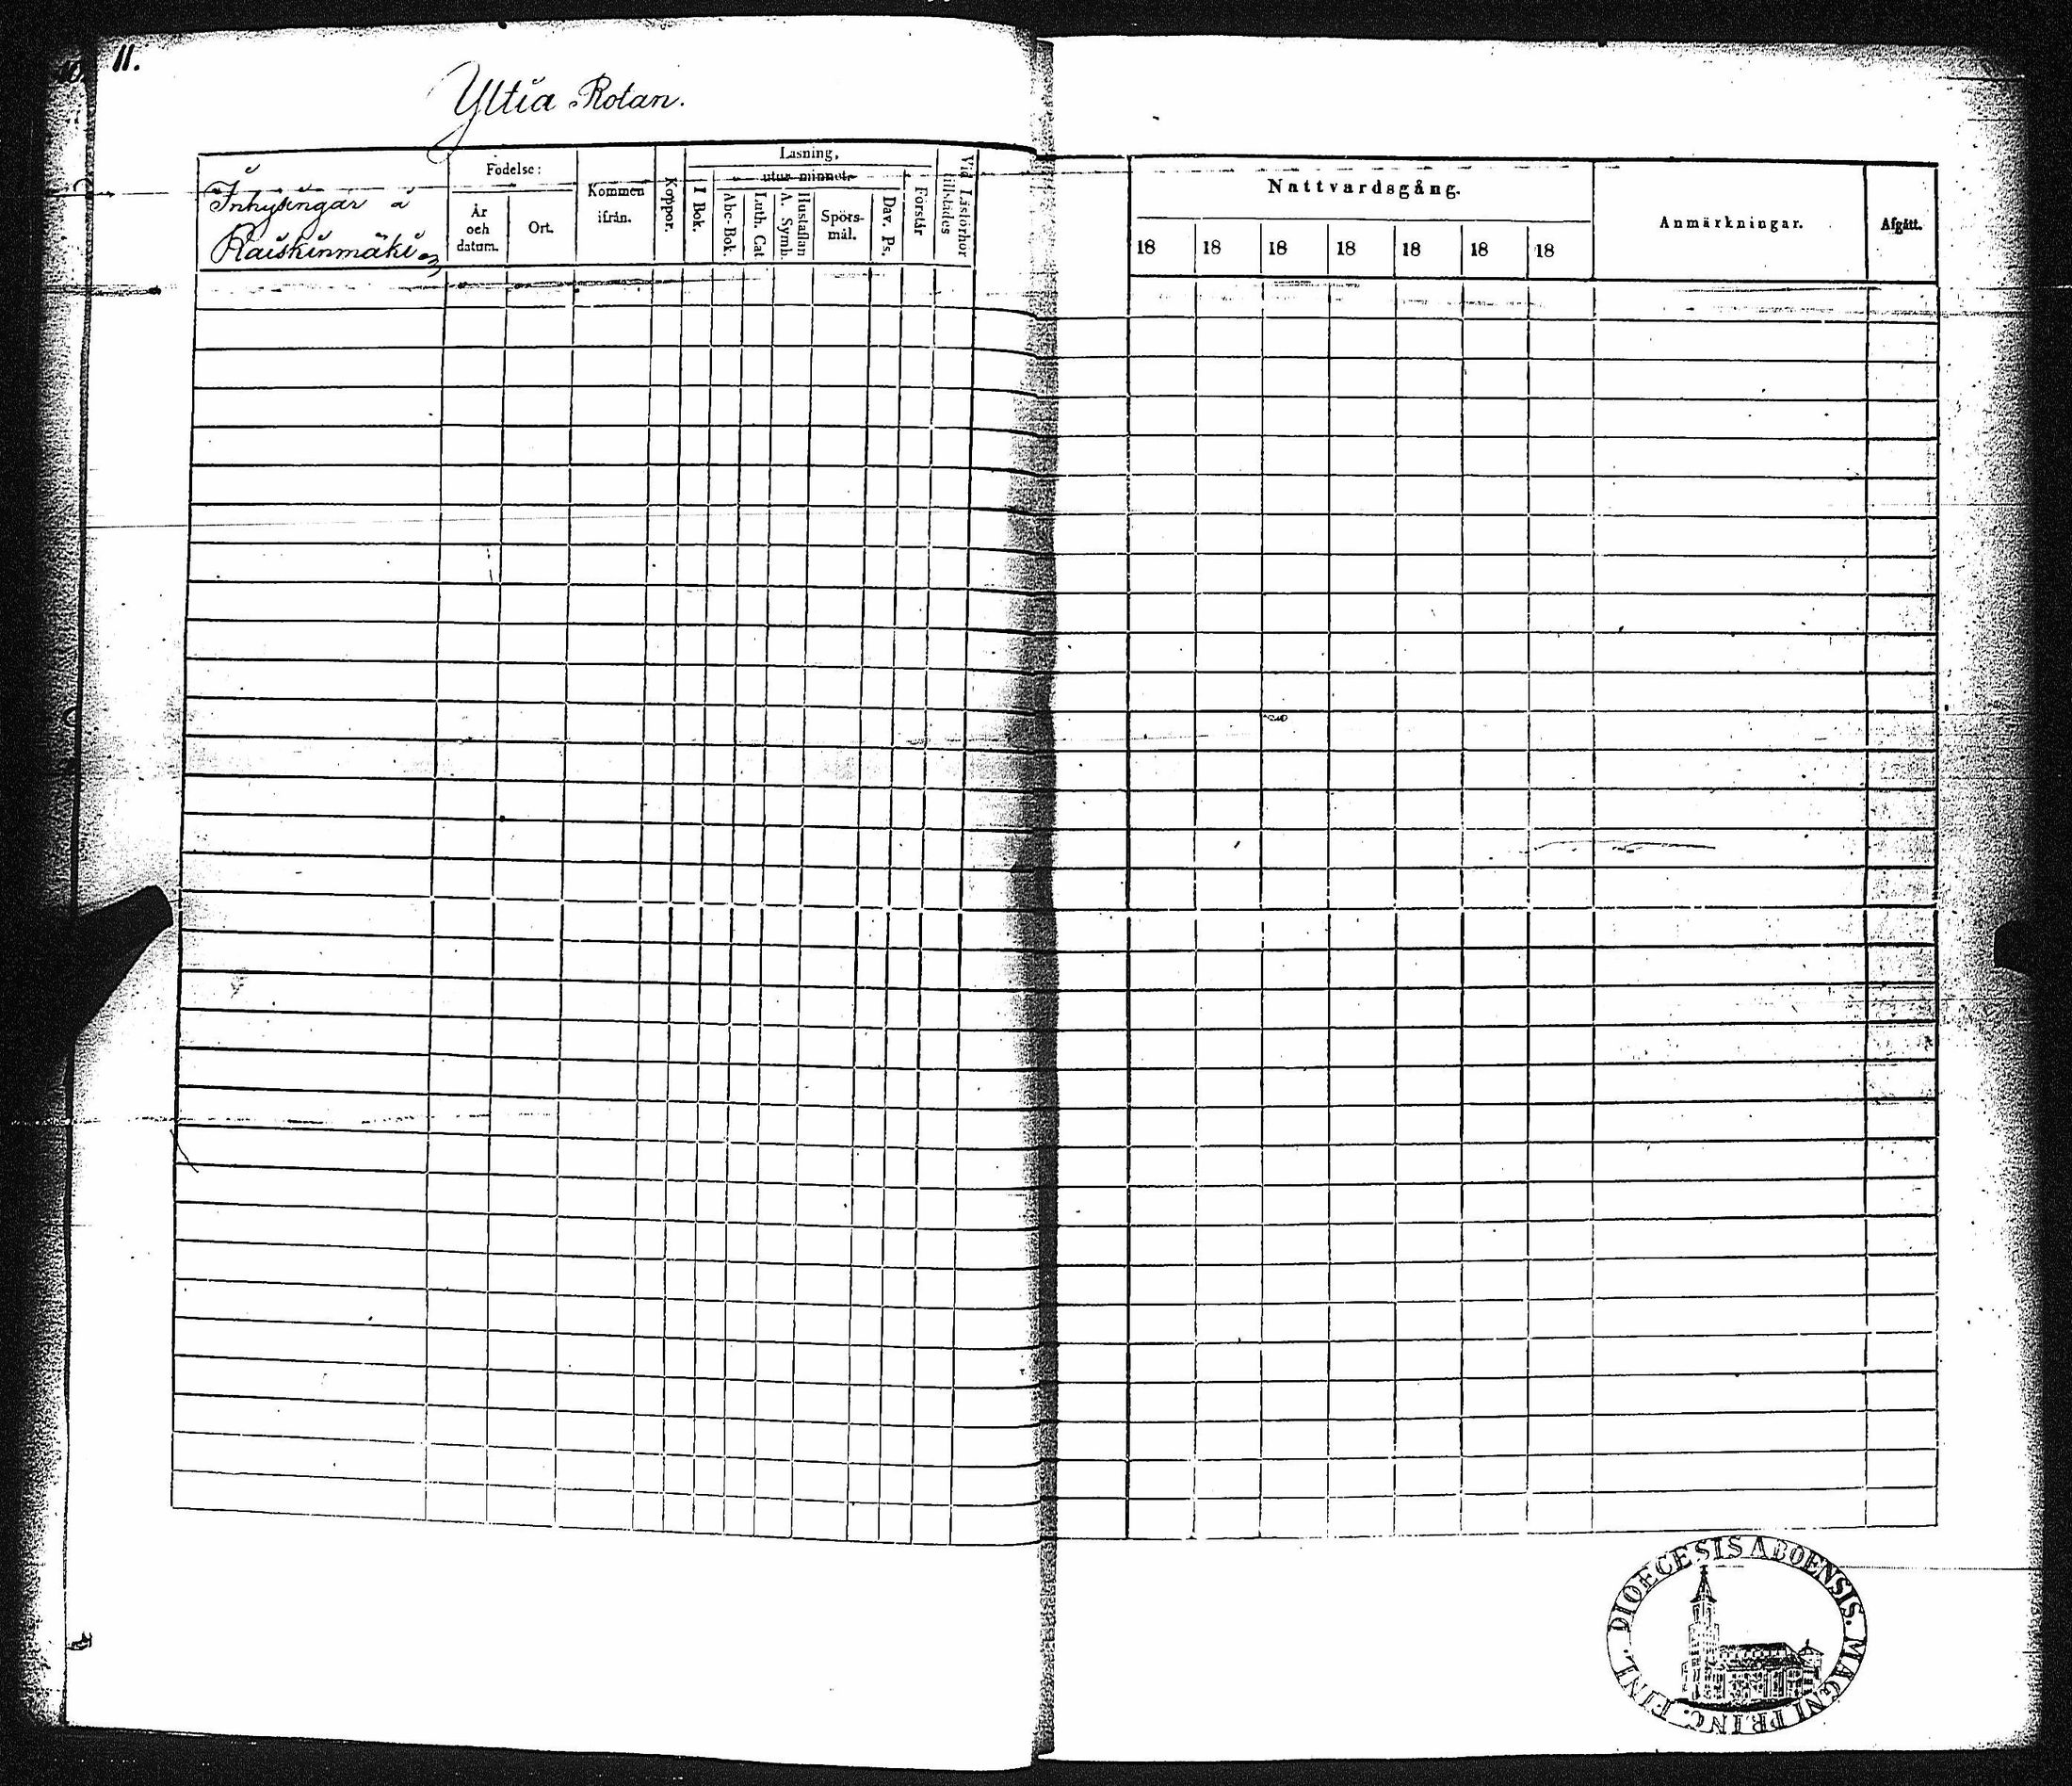 11.
Yltiä Rotan.
Inhysingar å
Raiskinmäki
Födelse:
År
och
datum.
Ort.
Kommen
ifrån.
Koppor.
Läsning,
utur minnet.
I Bok.
Abc-Bok.
Luth. Cat
Hustaflan
A. Symb.
Spörs-
mål.
Dav. Ps.
Förstår
Vid Läsförhör
tillstädes
Nattvardsgång.
18 18 18 18 18 18 18
Anmärkningar.
Afgått.
DIOECESIS ABOENSIS. MAGNI PRINC. FINL.